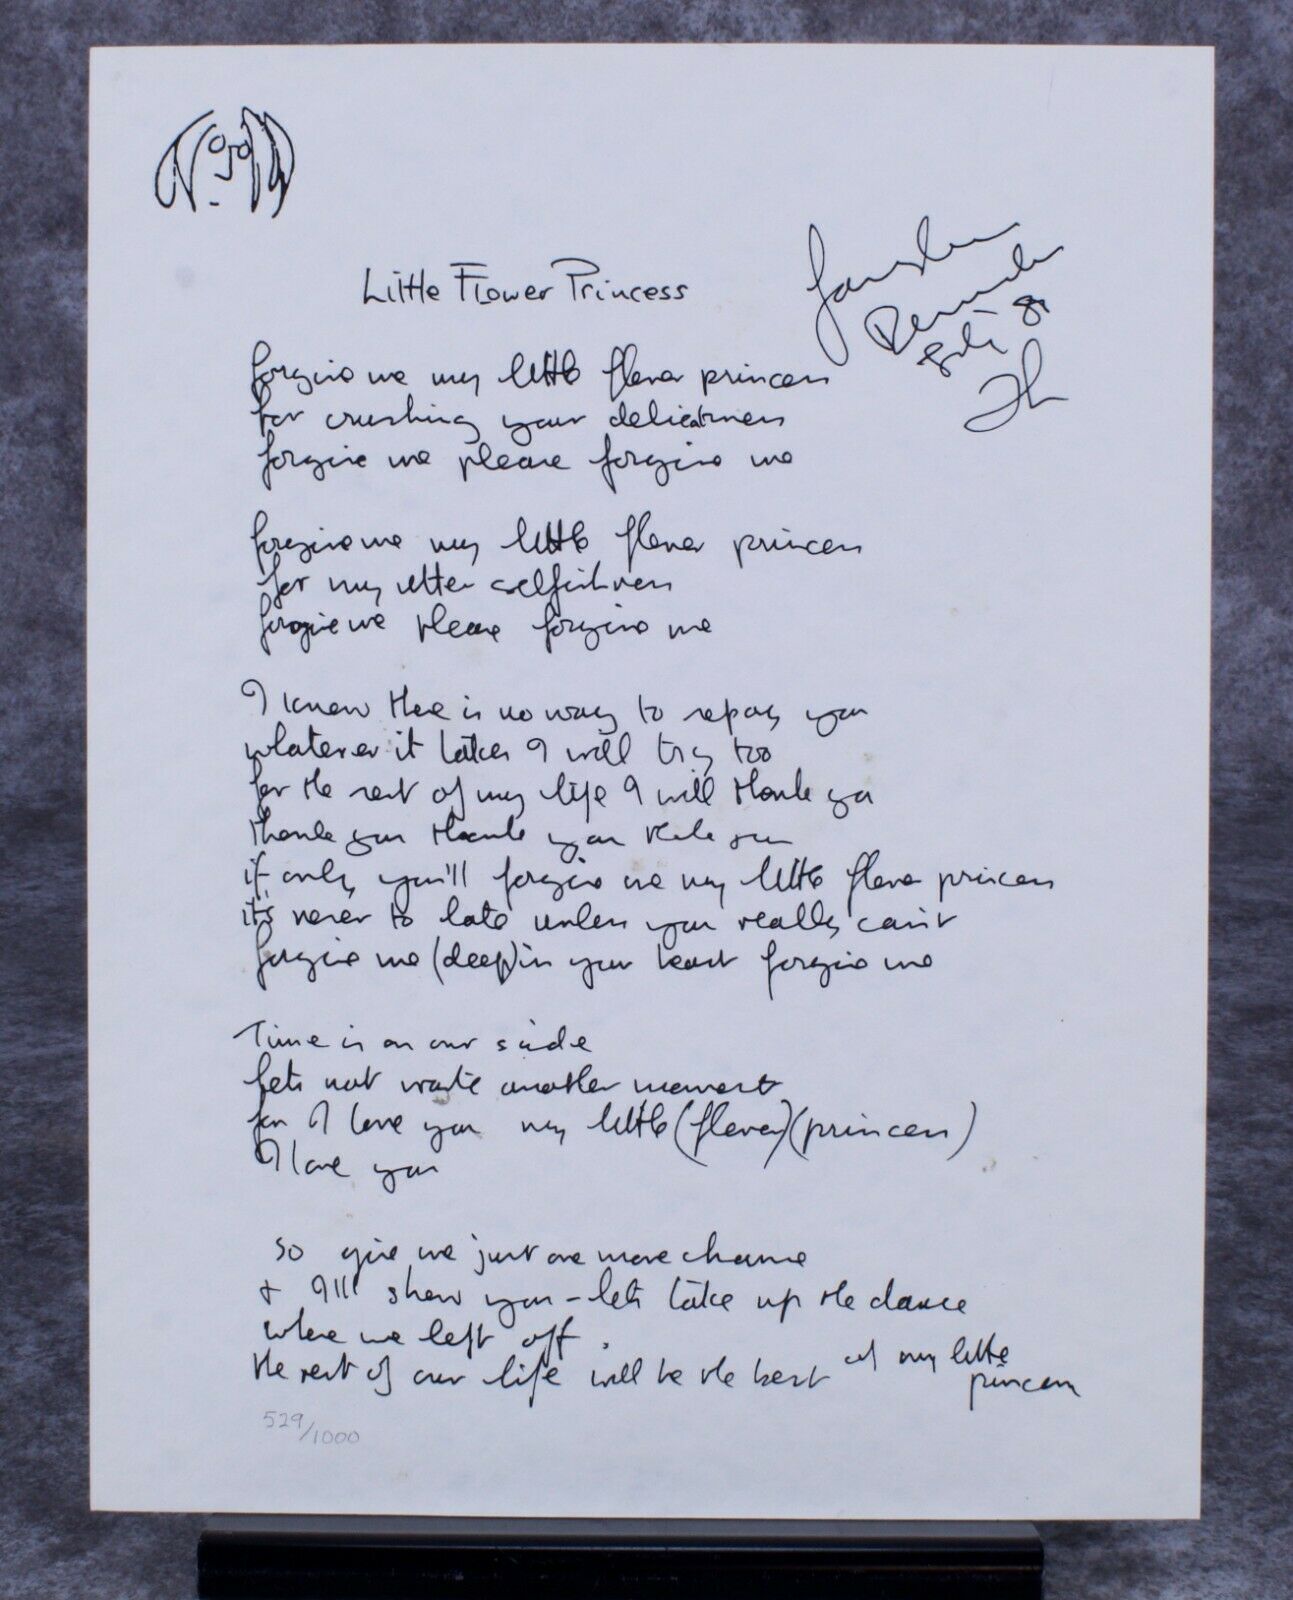 Little Flower Princess
Bermuda
80
JL
forgive me my little flower princess
for crushing your delicatness
forgive me please forgive me
forgive me my little flower princess
for my utter selfishness
forgive me please forgive me
I know there is no way to repay you
whatever it takes I will try too
for the rest of my life I will thank you
thank you thank you thank you
if only you'll forgive me my little flower princess
it's never to late unless you really can't
forgive me (deep) in your heart forgive me
Time is on our side
lets not waste another moment
for I love you my little (flower) (princess)
I love you
so give me just one more chance
+ I'll show you - lets take up the dance
where we left off.
the rest of our life will be the best
of my little
princess
529/1000